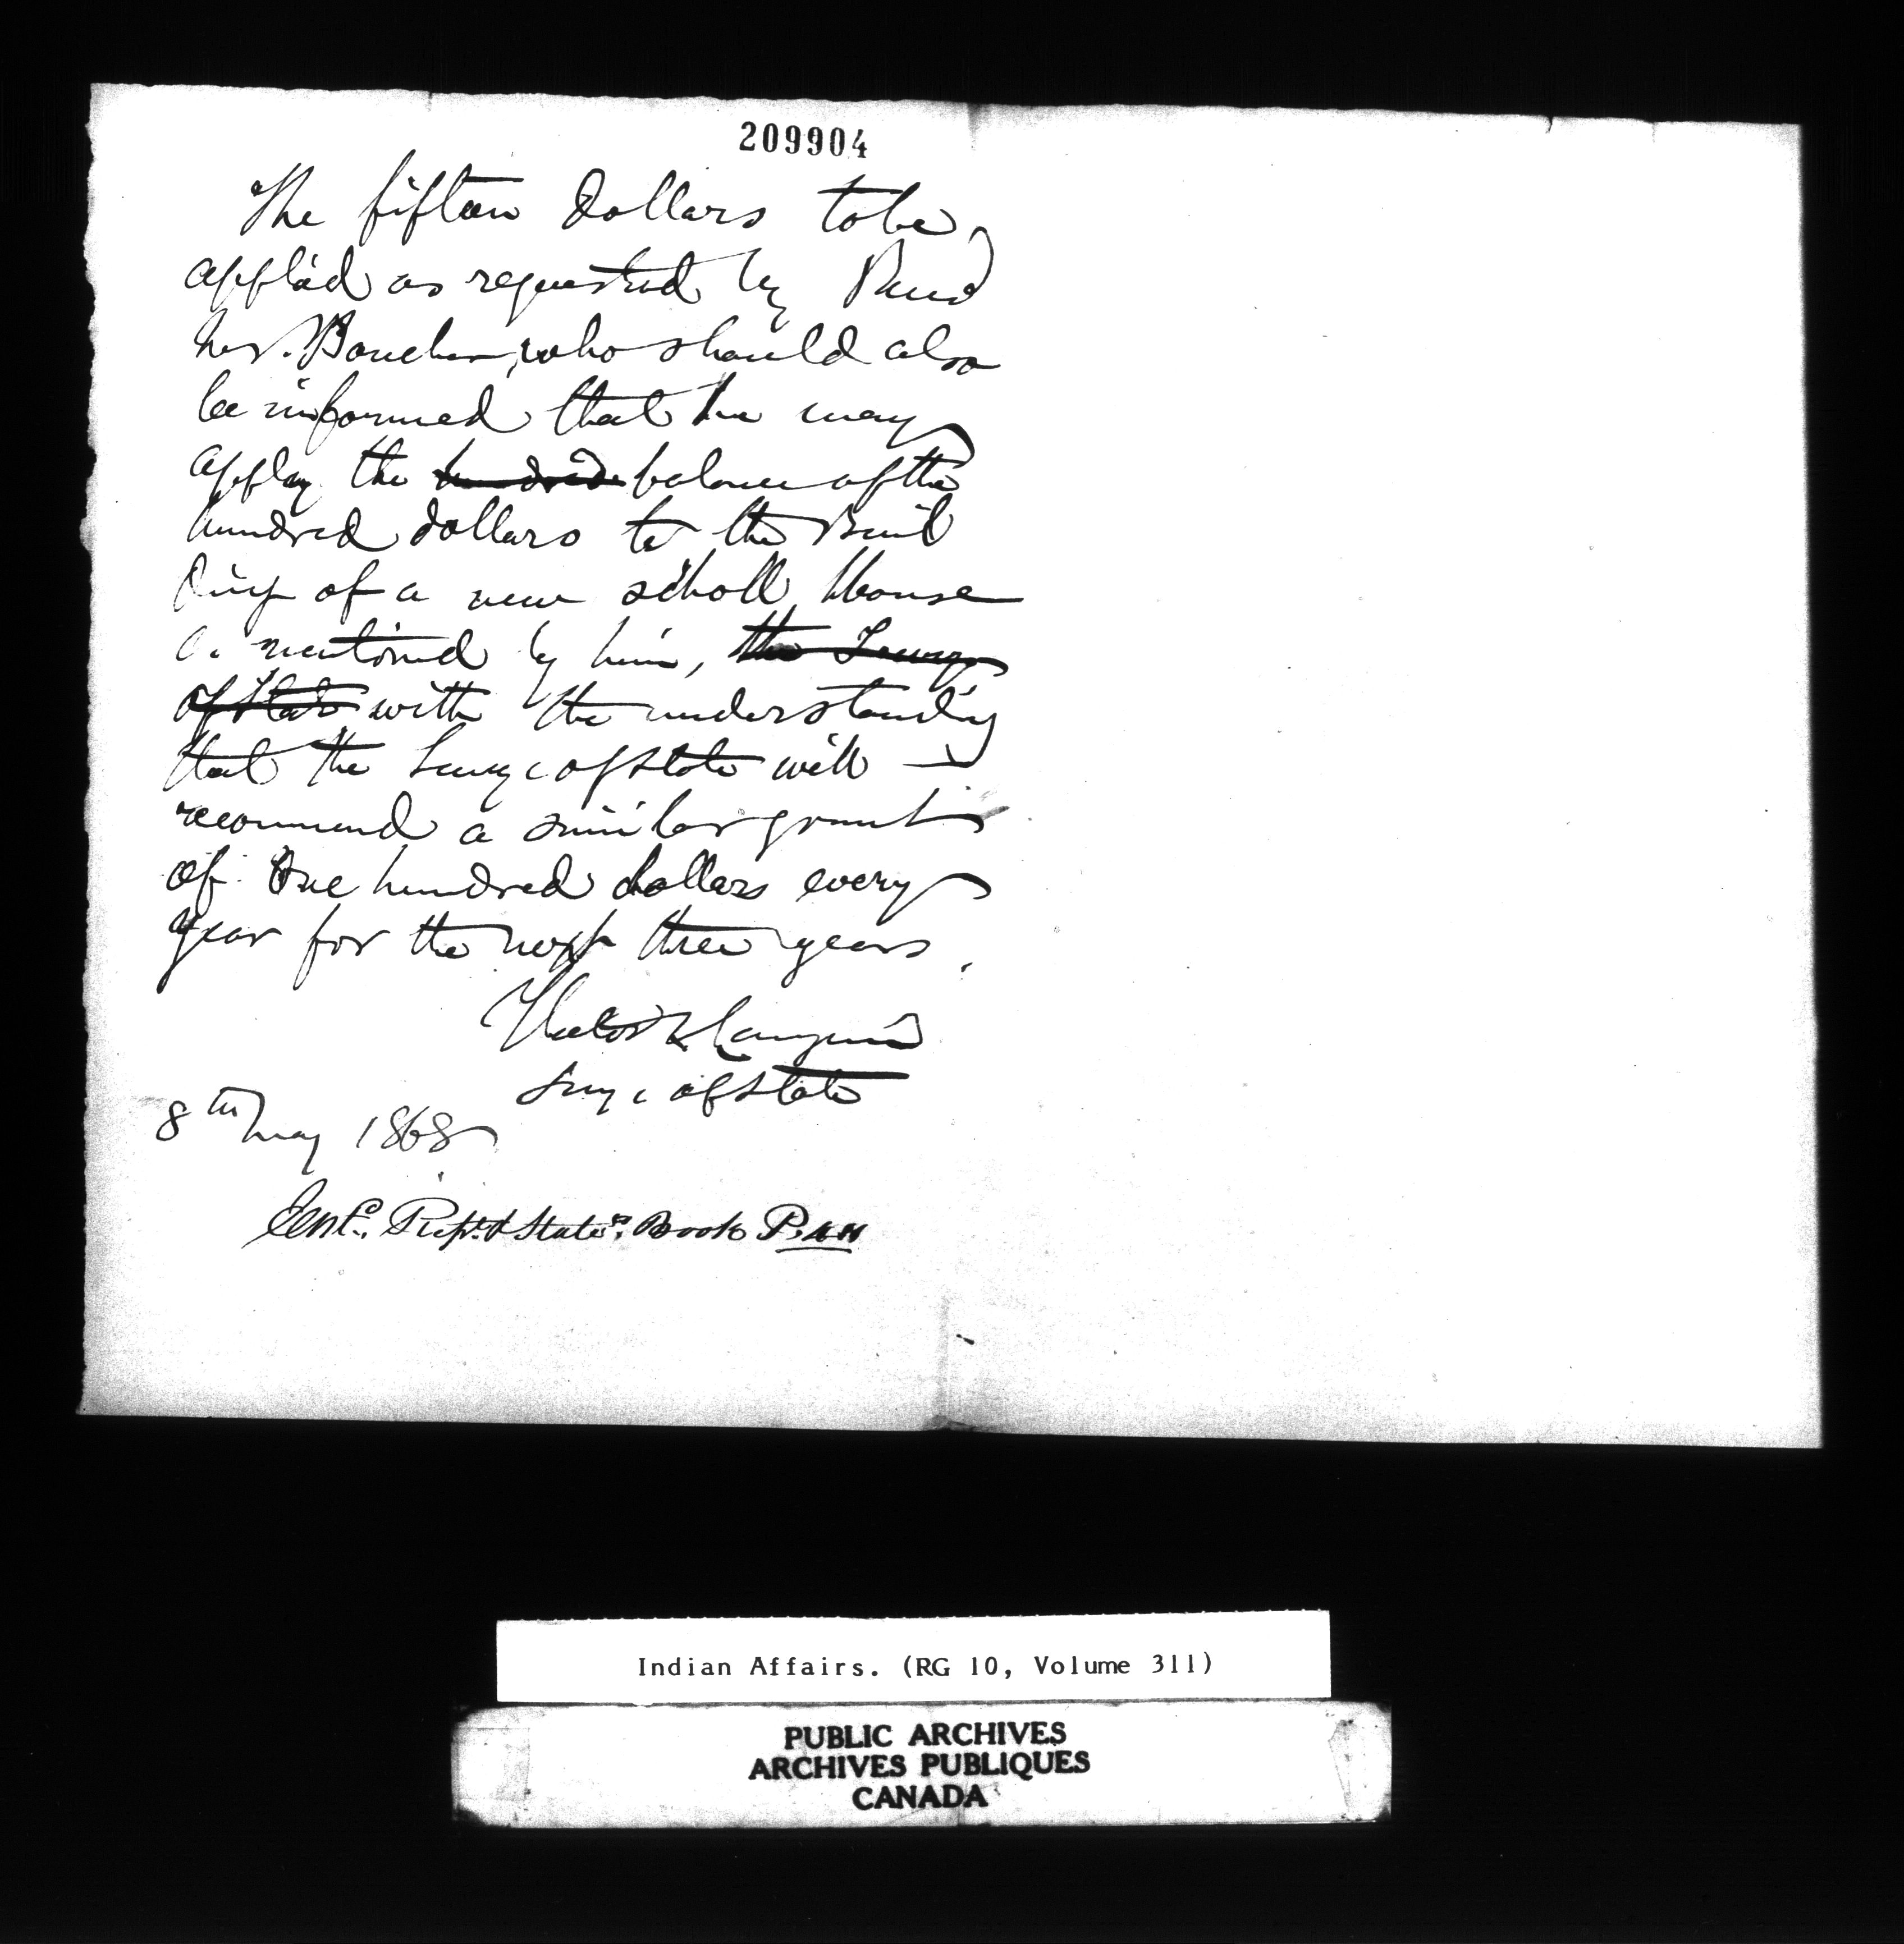 209904
The fifteen dollars to be
applied as requested by Revd
Mr. Boucher, who should also
be informed that he may
apply the hundred balance of the
hundred dollars to the Buil
ding of a new scholl House
as mentioned by him, the Secrey
of State with the understanding
that the Secrey of State will
recommend a similar grant
of One hundred dollars every
year for the next three years.
Hector L. Langevin
Secy of State
8th May 1868
Book P.
Indian Affairs. (RG 10, Volume 311)
PUBLIC ARCHIVES
ARCHIVES PUBLIQUES
CANADA